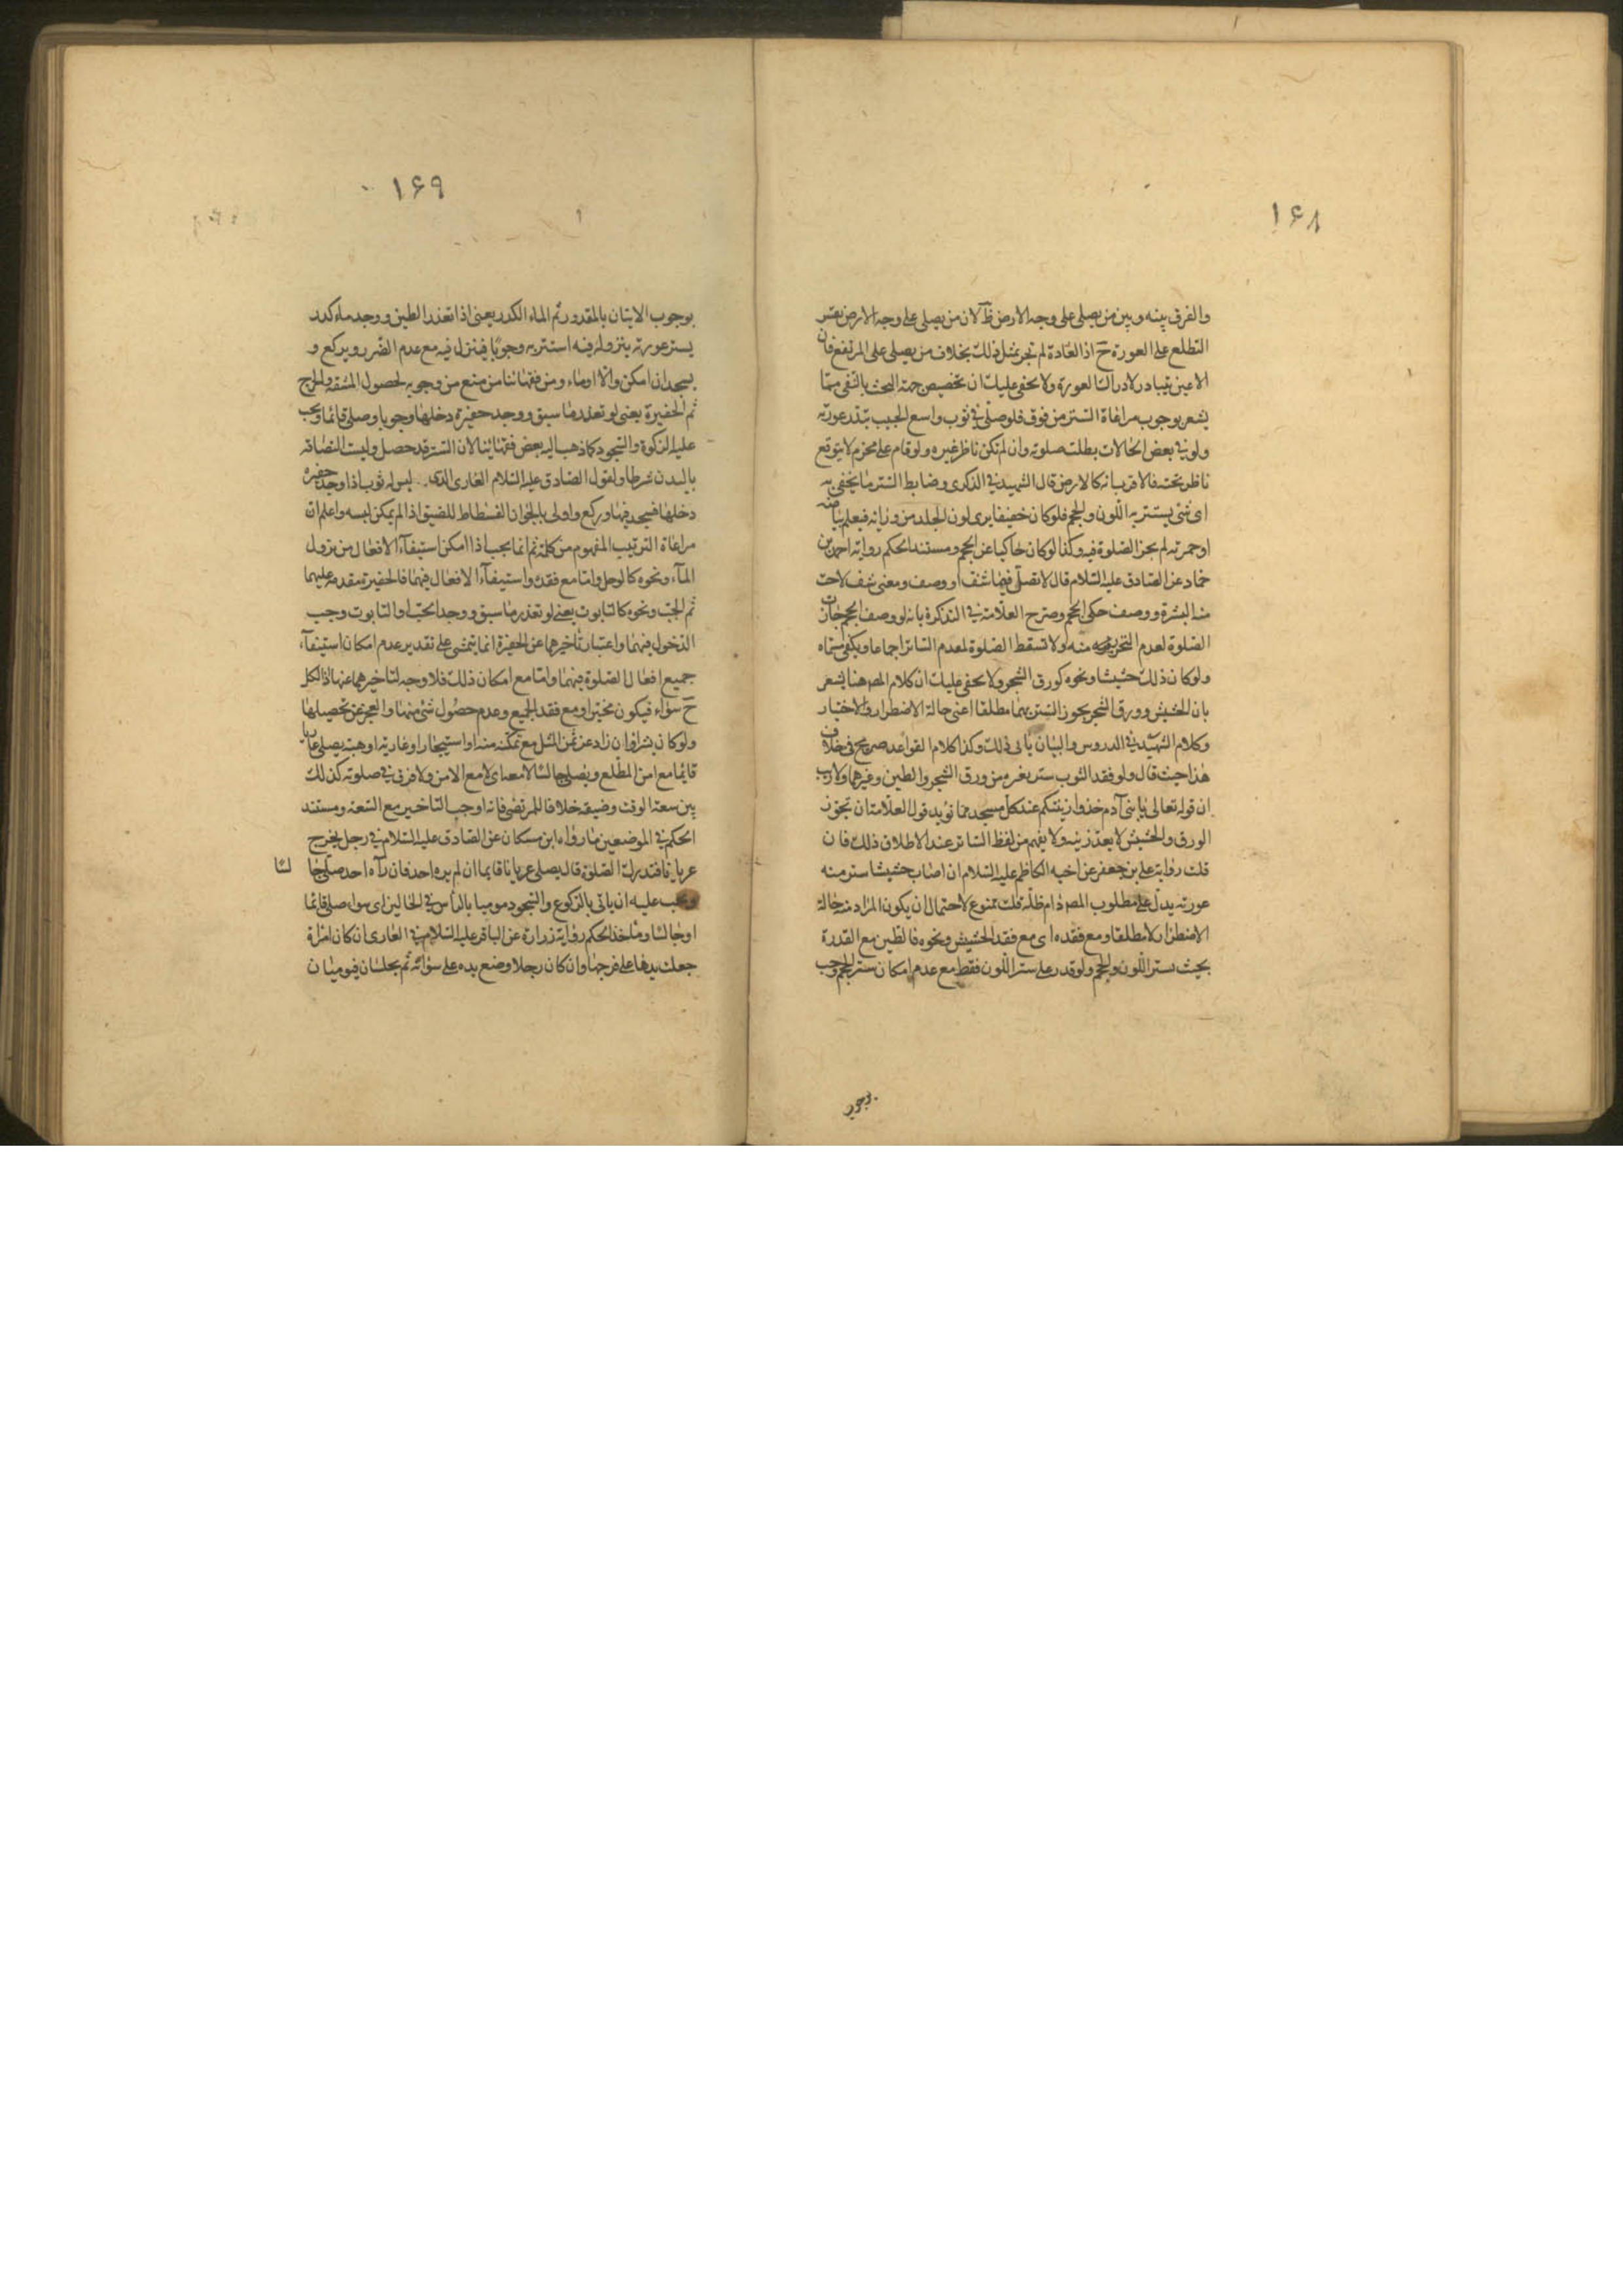 ١۶٨
والفرق بينه وبين من يصلى على وجه الارض ظ لان من يصلى على وجه الارض يعسر
التطلع على العورة ح اذ العادة لم تجر بمثل ذلك بخلاف من يصلى على المرتفع فان
الاعين يتبادر لادراك العورة ولا يخفى عليك ان تخصيص جهة التحت بالنفى مما
يشعر بوجوب مراعاة الستر من فوق فلو صلى في ثوب واسع الجيب تبدر عورته
ولو في بعض الحالات بطلت صلوته وان لم تكن ناظر غيره ولو قام على مخرم لا يتوقع
ناظر تحته فالاقرب انه كالارض قال الشهيد في الذكرى وضابط الستر ما يخفى به
اى شئ يستتر به اللون والحجم فلو كان خفيفا يرى لون الجلد من ورائه فيعلم بياضه
او حمرته لم يجز الصلوة فيه وكذا لو كان حاكيا عن الحجم ومستند الحكم رواية احمد بن
حماد عن الصادق عليه السلام قال لا تصلى فيما شف او وصف ومعنى شف لاحت
منه البشرة ووصف حكى الحجم وصرح العلامة في التذكرة بانه لو وصف الحجم جازت
الصلوة لعدم التحريم منه ولا تسقط الصلوة لعدم الساتر اجماعا ويكفى مسماه
ولو كان ذلك حشيشا ونحوه كورق الشجر ولا يخفى عليك ان كلام المصـ هنا يشعر
بان الحشيش وورق الشجر يجوز التستر بهما مطلقا اعنى حالة الاضطرار والاختيار
وكلام الشهيد في الدروس والبيان يأبى ذلك وكذا كلام القواعد صريح في خلاف
هذا حيث قال ولو فقد الثوب ستر بغيره من ورق الشجر والطين وغيرهما ولا ريب
ان قوله تعالى يا بنى آدم خذوا زينتكم عند كل مسجد مما نؤيد قول العلامة ان تجوز
الورق والحشيش لا يعد زينة ولا يفهم من لفظ الساتر عند الاطلاق ذلك فان
قلت رواية على بن جعفر عن اخيه الكاظم عليه السلام ان اصاب حشيشا ستر منه
عورته يدل على مطلوب المصـ دام ظله قلت ممنوع لاحتمال ان يكون المراد منه حالة
الاضطرار لا مطلقا ومع فقده اى مع فقد الحشيش ونحوه فالطين مع القدرة
بحيث ستر اللون والحجم ولو قدر على ستر اللون فقط مع عدم امكان ستر الحجم وجب
بوجوب
١۶٩
بوجوب الاتيان بالمقدور ثم الماء الكدر يعنى اذا تعذر الطين ووجد ماء كدر
يستر عورته بنزوله فيه استتر به وجوبا فينزل فيه مع عدم الضرر ويركع و
يسجد ان امكن والا اوماء ومن فقهائنا من منع من وجوبه لحصول المشقة والحرج
ثم الحفيرة يعنى لو تعذر ما سبق ووجد حفيرة دخلها وجوبا وصلى قائما ويجب
عليه الركوع والسجود كما ذهب اليه بعض فقهائنا لان الستر قد حصل وليست التصاقه
بالبدن شرطا ولقول الصادق عليه السلام العارى الذى ليس له ثوب اذا وجد حفيرة
دخلها فسجد فيها وركع واولى بالجواز الفسطاط للضيق اذا لم يمكن لبسه واعلم ان
مراعاة الترتيب المفهوم من كلمة ثم انما يجب اذا امكن استيفاء الافعال من نزول
الماء ونحوه كالوحل واما مع فقد واستيفاء الافعال فيهما فالحفيرة مقدمة عليهما
ثم الجب ونحوه كالتابوت يعنى لو تعذر ما سبق ووجد الجب او التابوت وجب
الدخول فيهما واعتبار تأخيرهما عن الحفيرة انما يتمشى على تقدير عدم امكان استيفاء
جميع افعال الصلوة فيهما واما مع امكان ذلك فلا وجه لتاخيرهما عنها اذ الكل
ح سواء فيكون مخيرا ومع فقد الجميع وعدم حصول شئ منها والعجز عن تحصيلها
ولو كان بشراء وان زاد عن ثمن المثل مع تمكنه منه او استيجار او عارية او هبة يصلى عاريا
قائما مع امن المطلع ويصلى جالسا لا معه اى لا مع الامن ولا فرق في صلوته كذلك
بين سعة الوقت وضيقه خلافا للمرتضى فانه اوجب التاخير مع السعة ومستند
الحكم في الموضعين ما رواه ابن مسكان عن الصادق عليه السلام في رجل يخرج
عريانا فتدركه الصلوة قال يصلى عريانا قائما ان لم يره احد فان رآه احد صلى جا لسا
ويجب عليه ان يأتى بالركوع والسجود موميا بالرأس في الحالين اى سواء صلى قائما
او جالسا ومأخذ الحكم رواية زرارة عن الباقر عليه السلام في العارى ان كان امرأة
جعلت يدها على فرجها وان كان رجلا وضع يده على سؤاته ثم يجلسان فيوميان